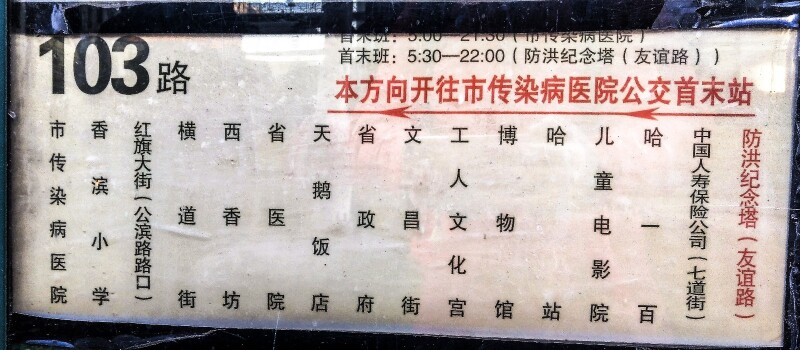 103路
首末班：5:00—21:30（市传染病医院）
首末班：5:30—22:00（防洪纪念塔（友谊路））
本方向开往市传染病医院公交首末站
市传染病医院
香滨小学
红旗大街（公滨路路口）
横道街
西香坊
省医院
天鹅饭店
省政府
文昌街
工人文化宫
博物馆
哈站
儿童电影院
哈一百
中国人寿保险公司（七道街）
防洪纪念塔（友谊路）